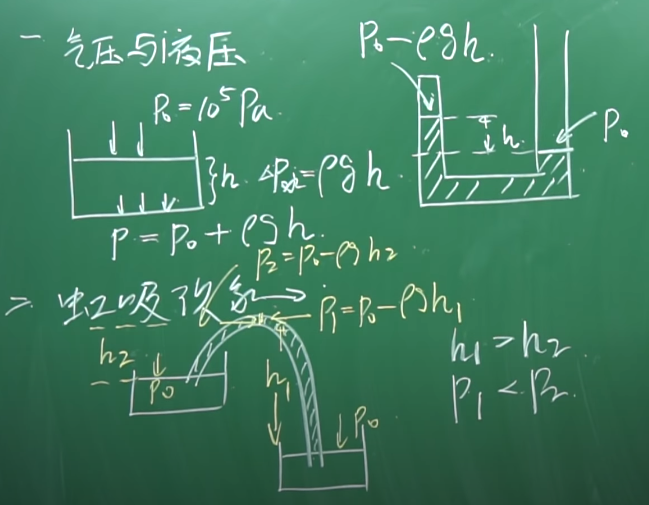 一 气压与液压
P₀=10⁵Pa.
}h ΔP液=ρgh.
P=P₀+ρgh.
P₀-ρgh.
h
P₀
二 虹吸现象
P₂=P₀-ρgh₂
P₁=P₀-ρgh₁
h₂
P₀
h₁
P₀
h₁>h₂
P₁<P₂.